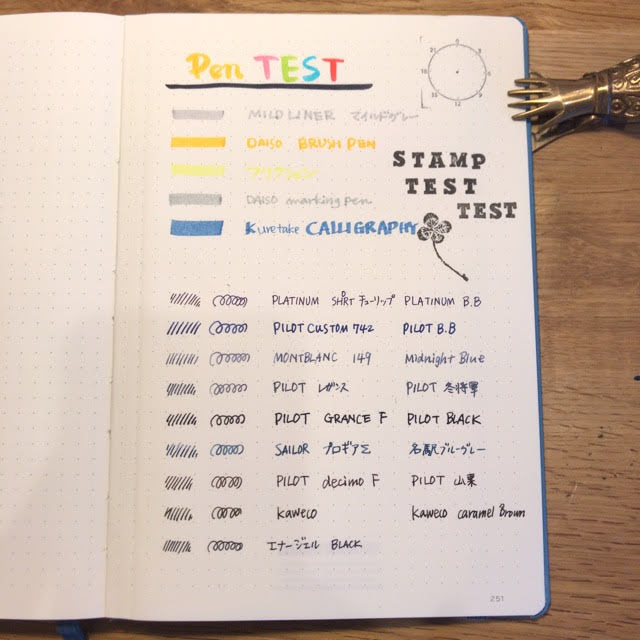 Pen TEST
MILDLINER マイルドグレー
DAISO BRUSH PEN
フリクション
DAISO marking pen
Kuretake CALLIGRAPHY
STAMP
TEST
TEST
PLATINUM SHORT チューリップ PLATINUM B.B
PILOT CUSTOM 742 PILOT B.B
MONTBLANC 149 Midnight Blue
PILOT レガンス PILOT 冬将軍
PILOT GRANCE F PILOT BLACK
SAILOR プロギアΣ 名駅ブルーグレー
PILOT decimo F PILOT 山栗
Kaweco Kaweco caramel Brown
エナージェル BLACK
251